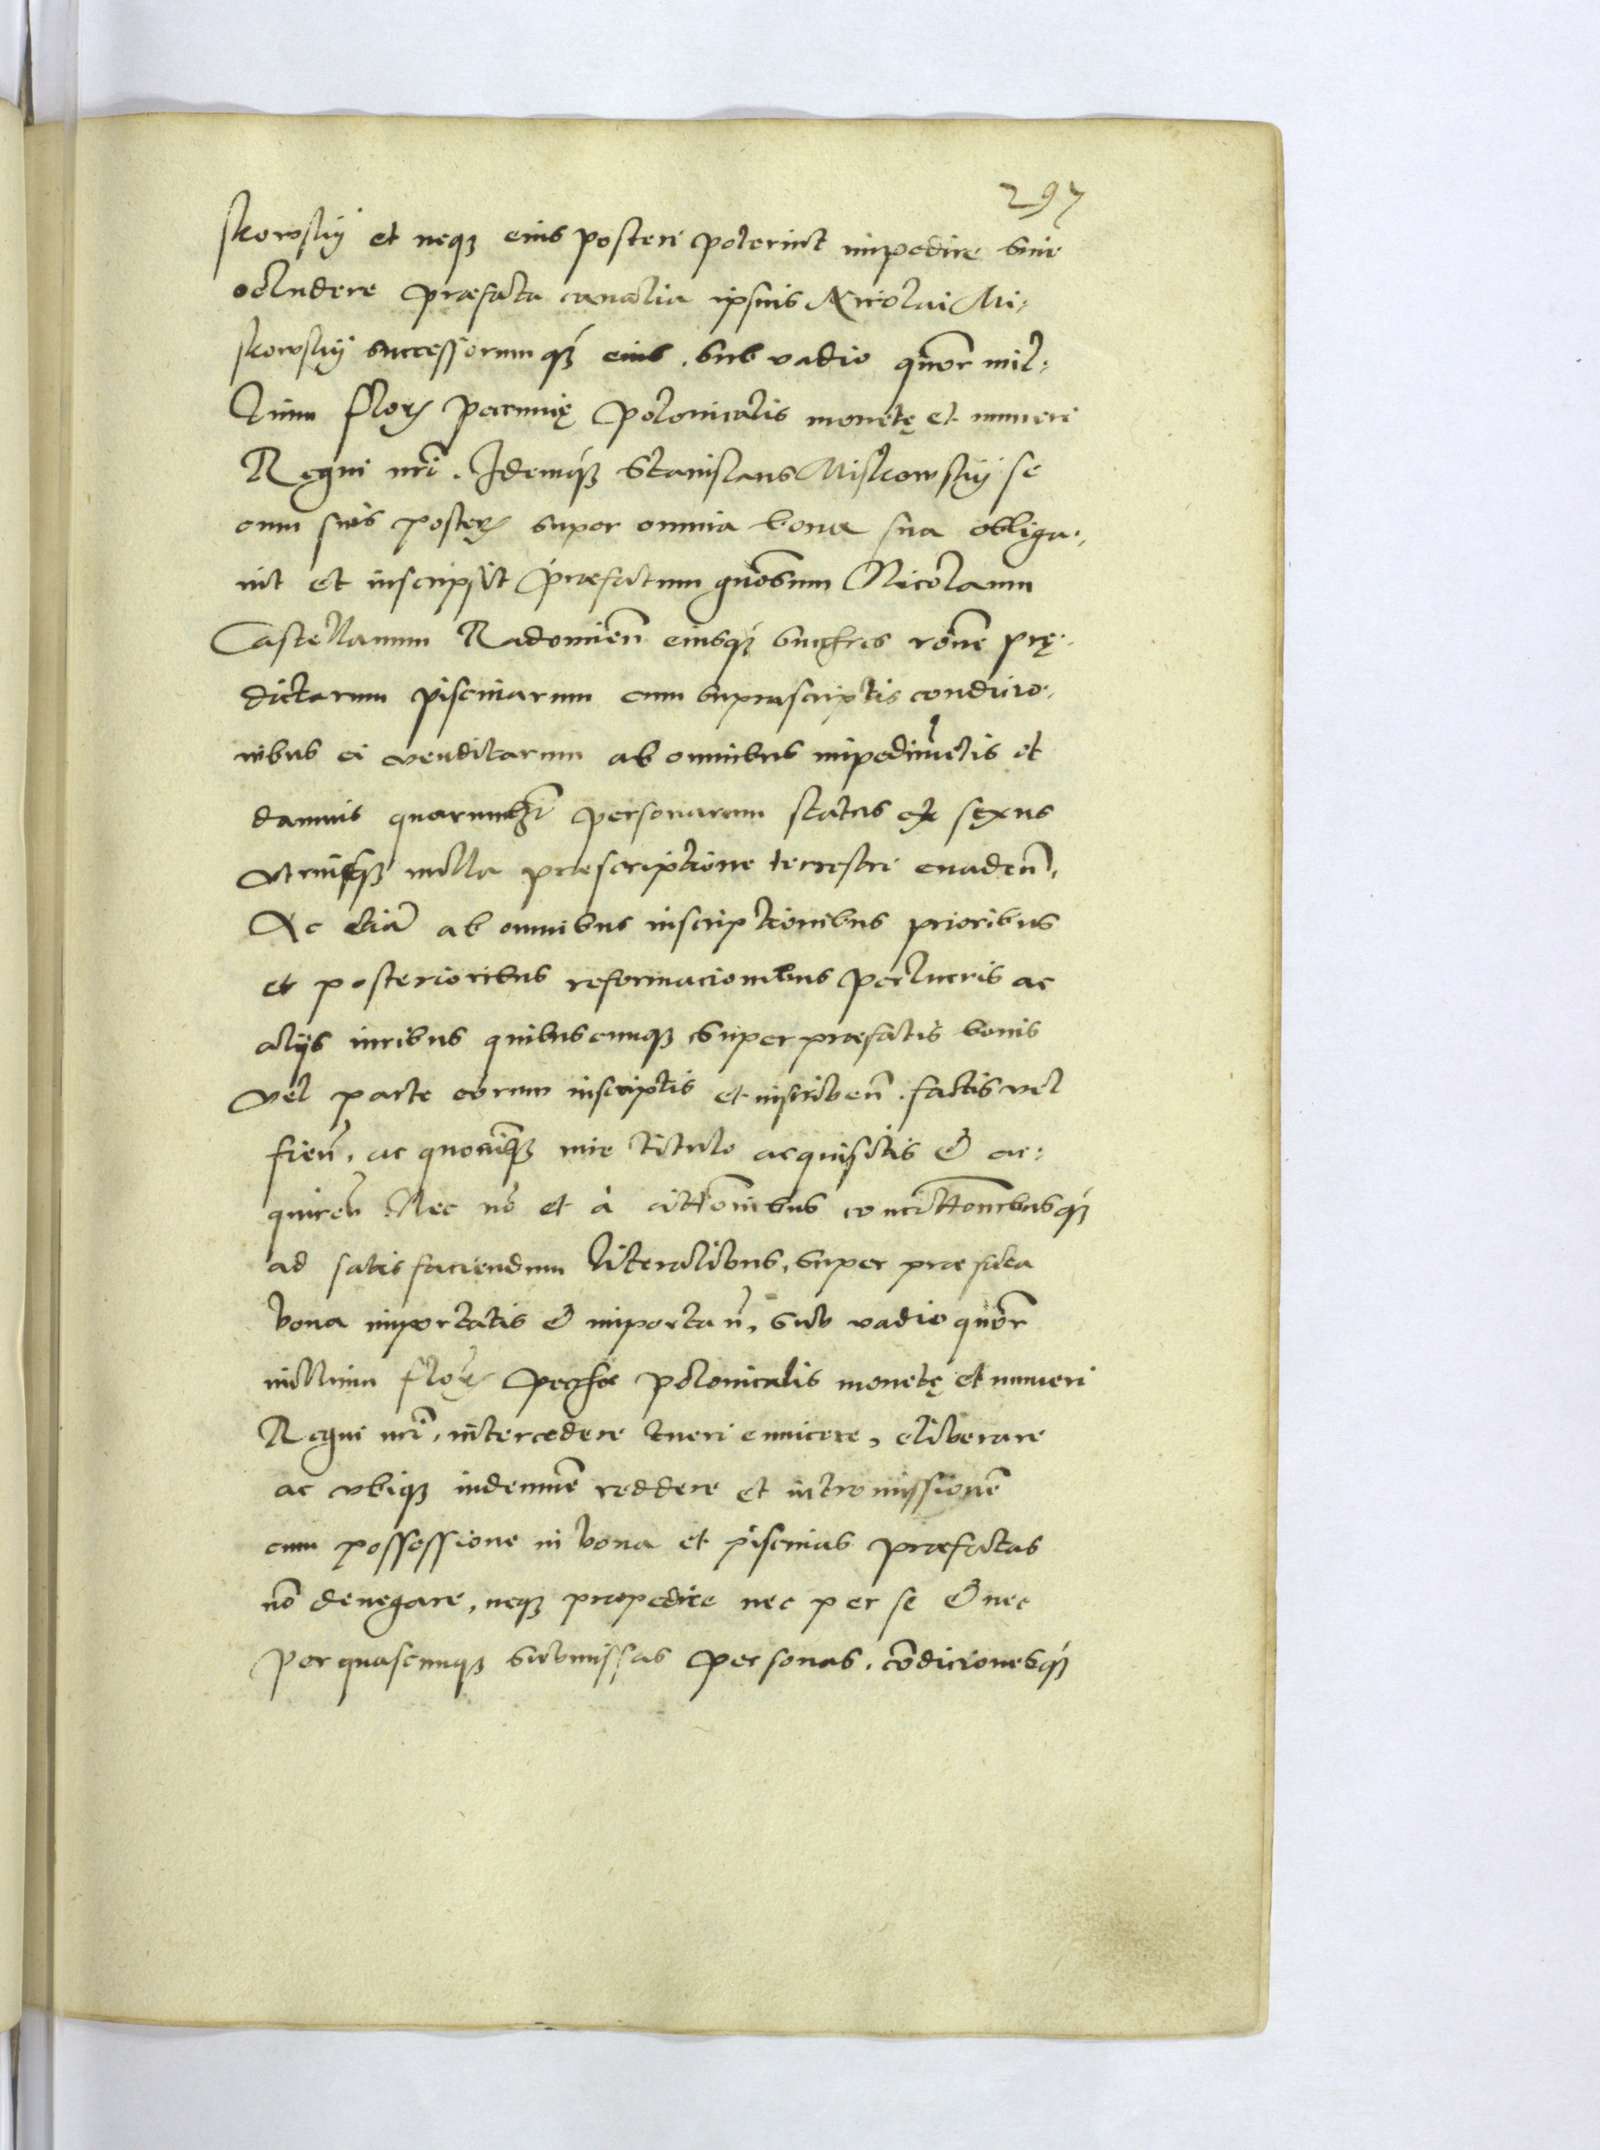 297
skowskij et neque eius posteri poterint impedire sive
ocludere praefata canalia ipsius Nicolai Mi:
skowskij successorumque eius, sub vadio quor mil:
lium flor pecunię Polonicalis monetę et numeri
Regni nri. Idemque Stanislaus Miskowskij se
cum suis poster super omnia bona sua obliga:
vit et inscripsit praefatum gnosum Nicolaum
Castellanum Radomien eiusque rone prę:
dictarum piscinarum cum suprascriptis condicio:
nibus ei venditarum ab omnibus impedimetis et
damnis quarumcunque personarum status et sexus
utriusque nulla praescriptione terrestri evaden.
Ac etia ab omnibus inscriptionibus prioribus
et posterioribus reformacionibus perlucris ac
alijs iuribus quibuscunque super praefatis bonis
vel parte eorum inscriptis et inscriben. factis vel
fien. ac quovis iure titulo acquisitis & ac:
quiren. Nec no et à cittonibus concittonibusque
ad satisfaciendum literalibus, super praefata
bona importatis & importan. sub vadio quor
millium flor Polonicalis monetę et numeri
Regni nri, intercedere tueri evincere, eliberare
ac ubique indemne reddere et intromissione
cum possessione in bona et piscinas praefatas
no denegare, neque praepedire nec per se & nec
per quascunque submissas personas. condicionesque